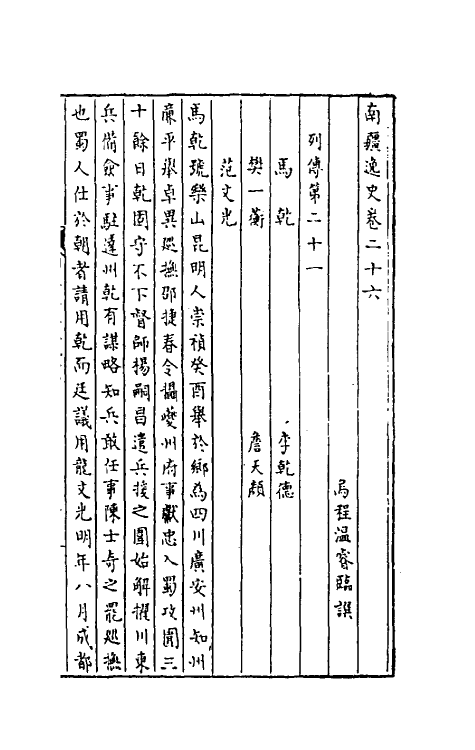 南疆逸史卷二十六
烏程溫睿臨譔
列傳第二十一
馬乾　李乾德
樊一蘅　詹天顏
范文光
馬乾號樂山昆明人崇禎癸酉舉於鄉為四川廣安州知州
廉平舉卓異巡撫邵捷春令攝夔州府事獻忠入蜀攻圍三
十餘日乾固守不下督師楊嗣昌遣兵援之圍始解擢川東
兵備僉事駐達州乾有謀略知兵敢任事陳士奇之罷巡撫
也蜀人仕於朝者請用乾而廷議用龍文光明年八月成都